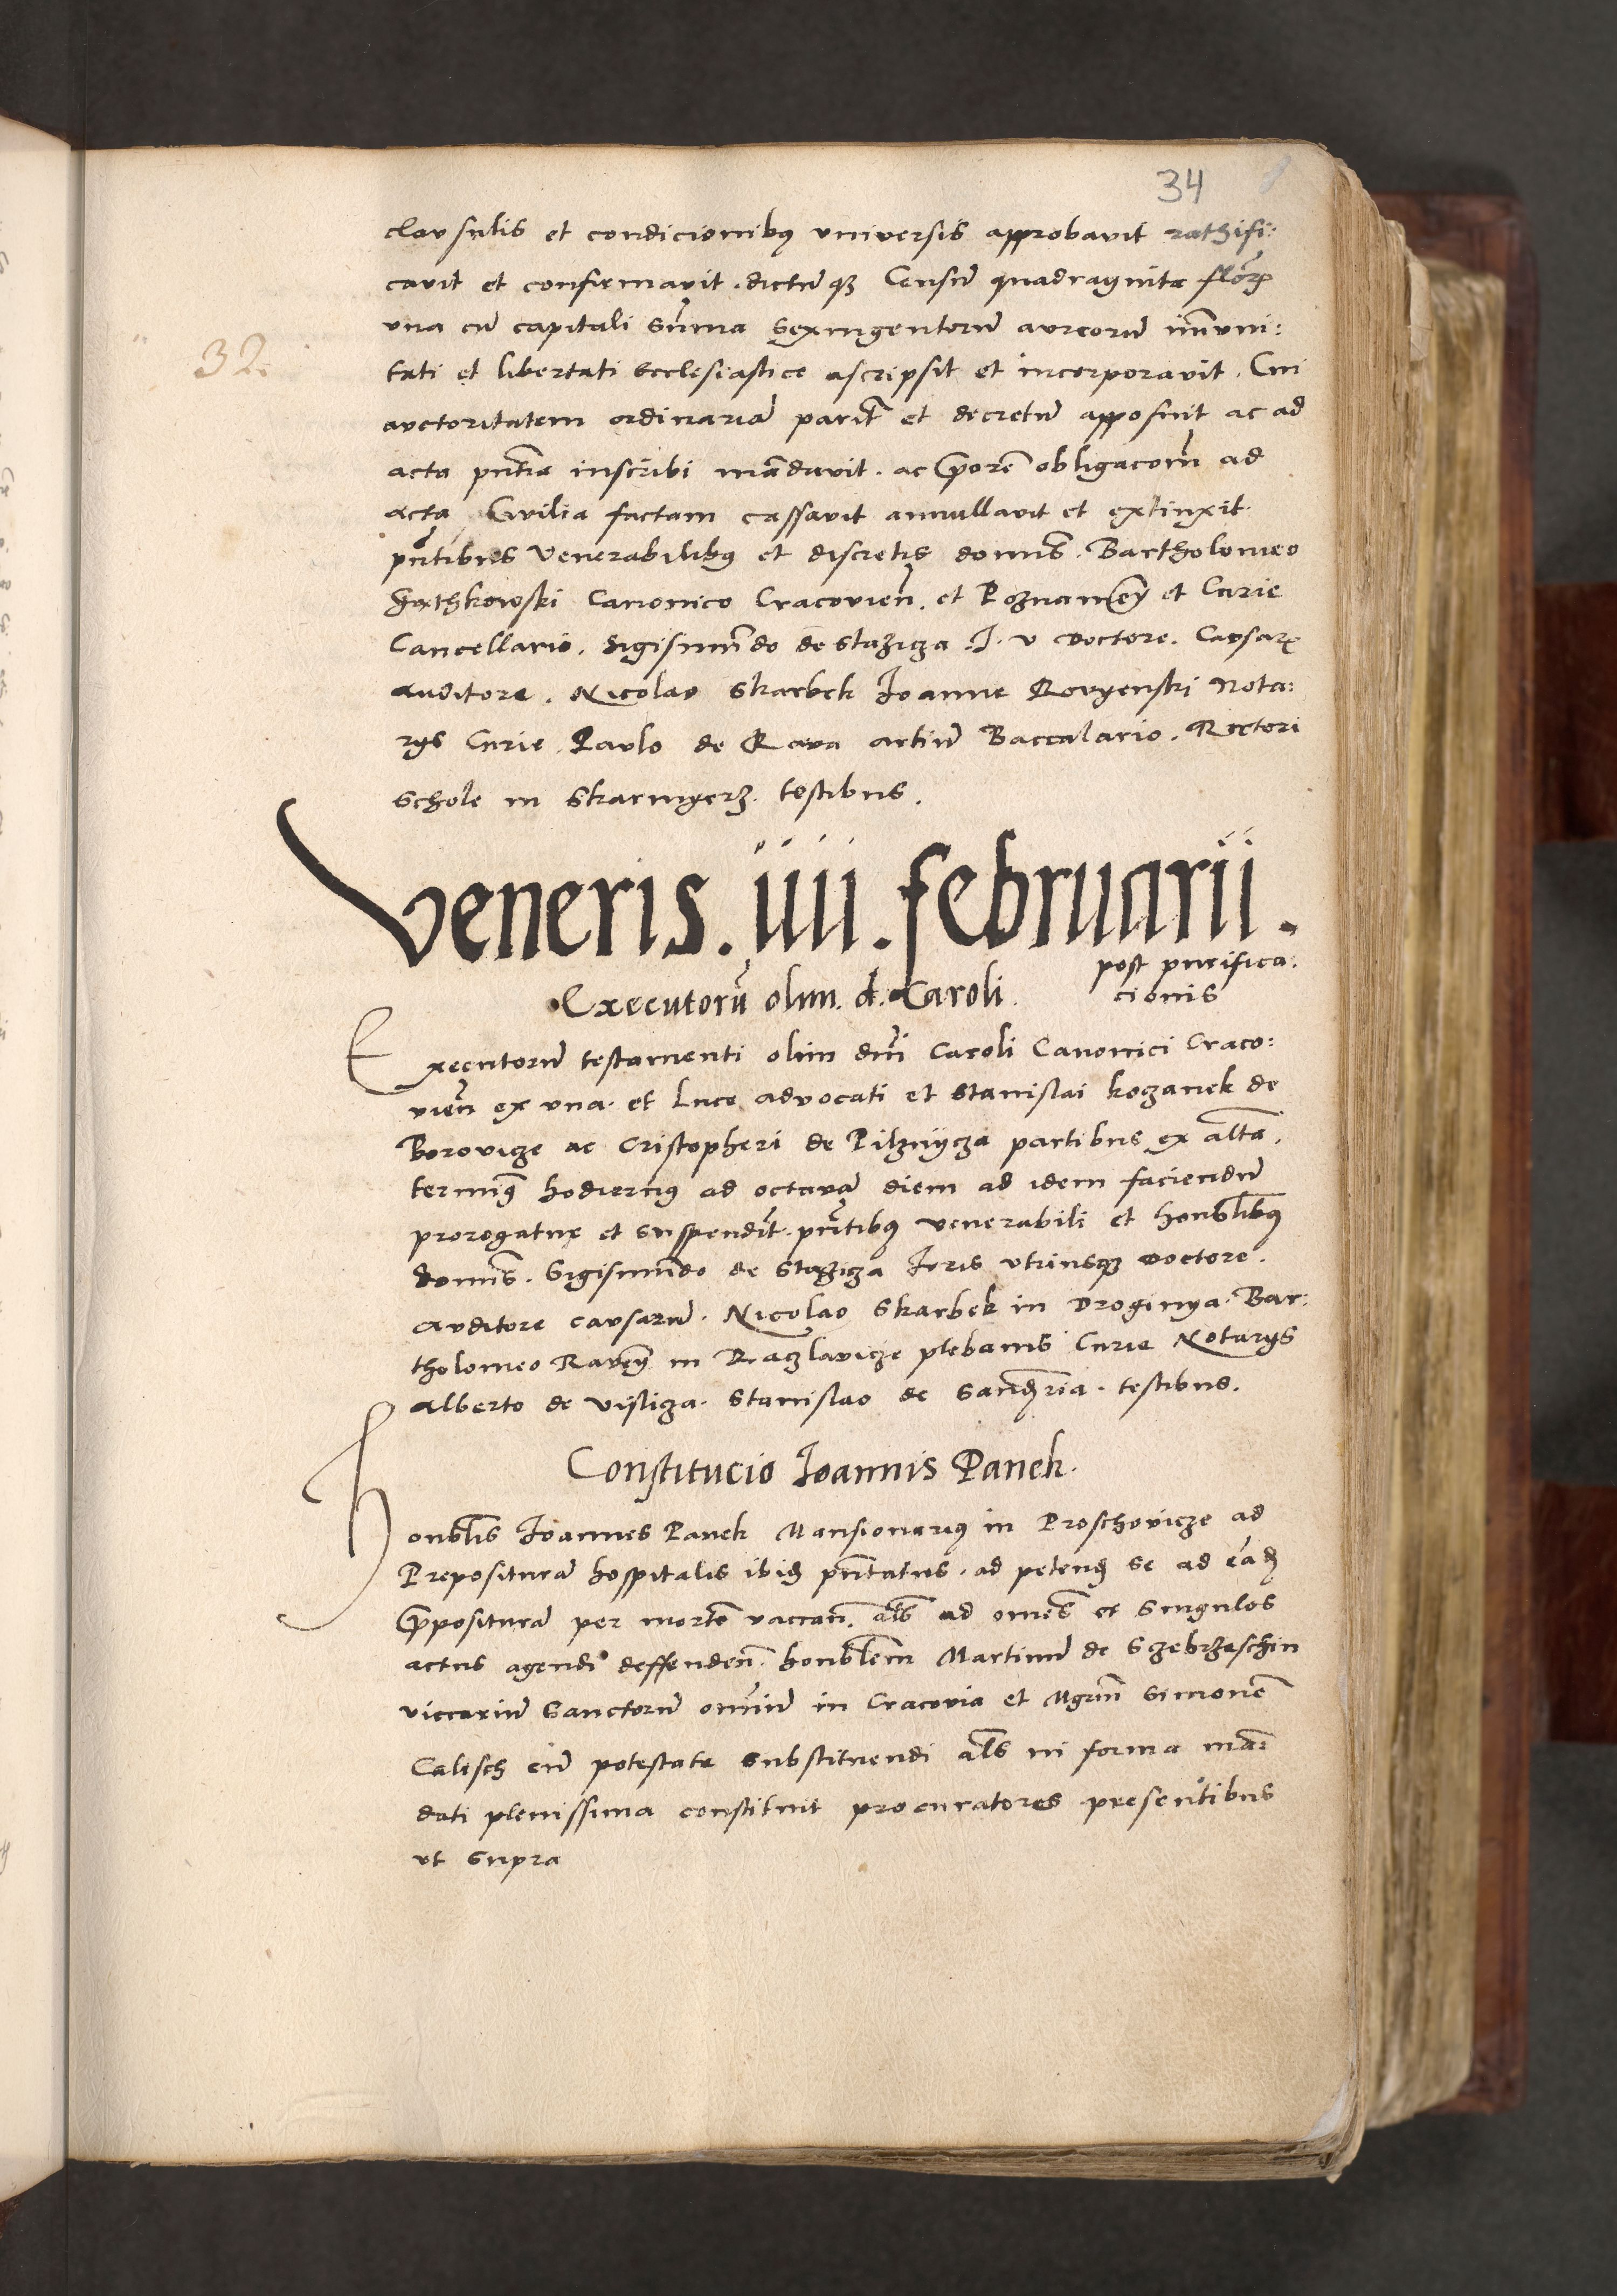 34
clausulis et condicionibus universis approbavit rathifi:
cavit et confirmavit. dictumque Censum quadraginta florenorum
una cum capitali summa sexingentorum aureorum immuni:
32.
tati et libertati ecclesiastice ascripsit et incorporavit. Cui
auctoritatem ordinariam pariter et decretum apposuit ac ad
acta pntia inscribi mandavit. ac priorem obligacionem ad
acta Civilia factam cassavit annullavit et extinxit.
pntibus Venerabilibus et discretis dominis. Bartholomeo
Canonico Cracovien. et Poznanien et Curie
Cancellario. Sigismundo de Stazicza J. v Doctore. Causarum
auditore. Nicolao Skarbek Joanne Notar:
ys Curie. Paulo de Rava artium Baccalario. Rectori
schole in testibus.
Veneris. iiii. februarii.
post purifica:
cionis
Executorum olim. d. Caroli.
Executorum testamenti olim dni Caroli Canonici Craco:
vien ex una. et Luce advocati et Stanislai kozanek de
Borovicze ac Cristopheri de Pilznycza partibus ex altera.
terminus hodiernus ad octavam diem ad idem faciendum
prorogatur et suspenditur. pntibus venerabili et honorabilibus
dominis. Sigismundo de Stazicza Juris utriusque Doctore.
auditore causarum. Nicolao Skarbek in Droginya. Bar:
tholomeo in Raczlavicze plebanis Curie Notarys
Alberto de Visliza. Stanislao de Sandomiria. testibus.
Constitucio Joannis Panek.
Honoblis Joannes Panek Mansionarius in Proschovicze ad
Preposituram hospitalis ibidem pntatus. ad petendum se ad eandem
preposituram per mortem vaccan. als ad omnes et singulos
actus agendi deffenden. honoblem Martinum de Szebrzeschin
viccarium Sanctorum omnium in Cracovia et Mgrum Simonem
Calisch cum potestate substituendi als in forma man:
dati plenissima constituit procuratores presentibus
ut supra